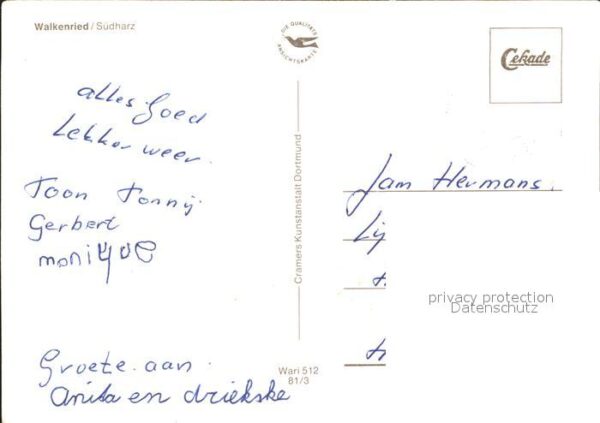 Walkenried / Südharz
DIE QUALITÄTS
ANSICHTSKARTE
Cekade
alles goed
Lekker weer.
Toon Tonnij
Gerbert
monique
Groete aan
Anita en driekske
Cramers Kunstanstalt Dortmund
Wari 512
81/3
Jam Hermans.
privacy protection
Datenschutz